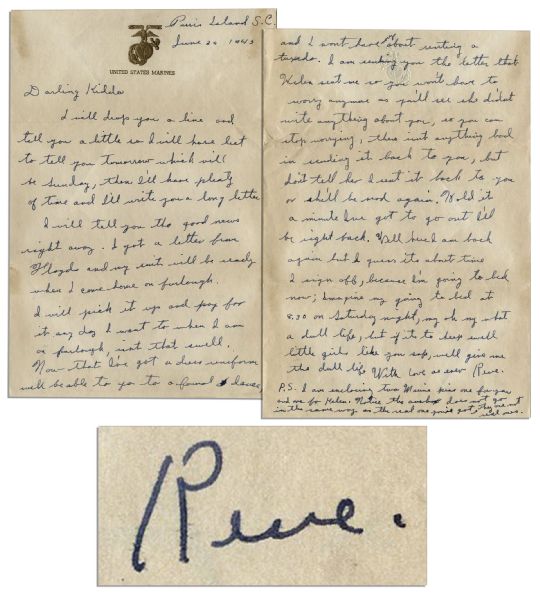 Parris Island S.C.
June 26 1943
UNITED STATES MARINES
Darling Kiddo
I will drop you a line and
tell you a little so I will have lots
to tell you tomorrow which will
be Sunday, then I'll have plenty
of time and I'll write you a long letter.
I will tell you the good news
right away. I got a letter from
Floyds and my suit will be ready
when I come home on furlough.
I will pick it up and pay for
it any day I want to when I am
on furlough, isnt that swell.
Now that I've got a dress uniform
we'll be able to go to a formal dance
and I wont have to worry about renting a
tuxedo. I am sending you the letter that
Helen sent me so you won't have to
worry anymore as you'll see she didnt
write anything about you, so you can
stop worrying, there isnt anything bad
in sending it back to you, but
don't tell her I sent it back to you
or she'll be mad again. Hold it
a minute I've got to go out I'll
be right back. Well here I am back
again but I guess its about time
I sign off, because I'm going to bed
now; imagine my going to bed at
8:30 on Saturday night, my oh my what
a dull life, but if its to keep swell
little girls like you safe, well give me
the dull life. With love as ever Rene.
P.S. I am enclosing two Marine pins one for you
and one for Helen. Notice the anchor does not go
in the same way as the real one you've got, they are not
real ones.
Rene.